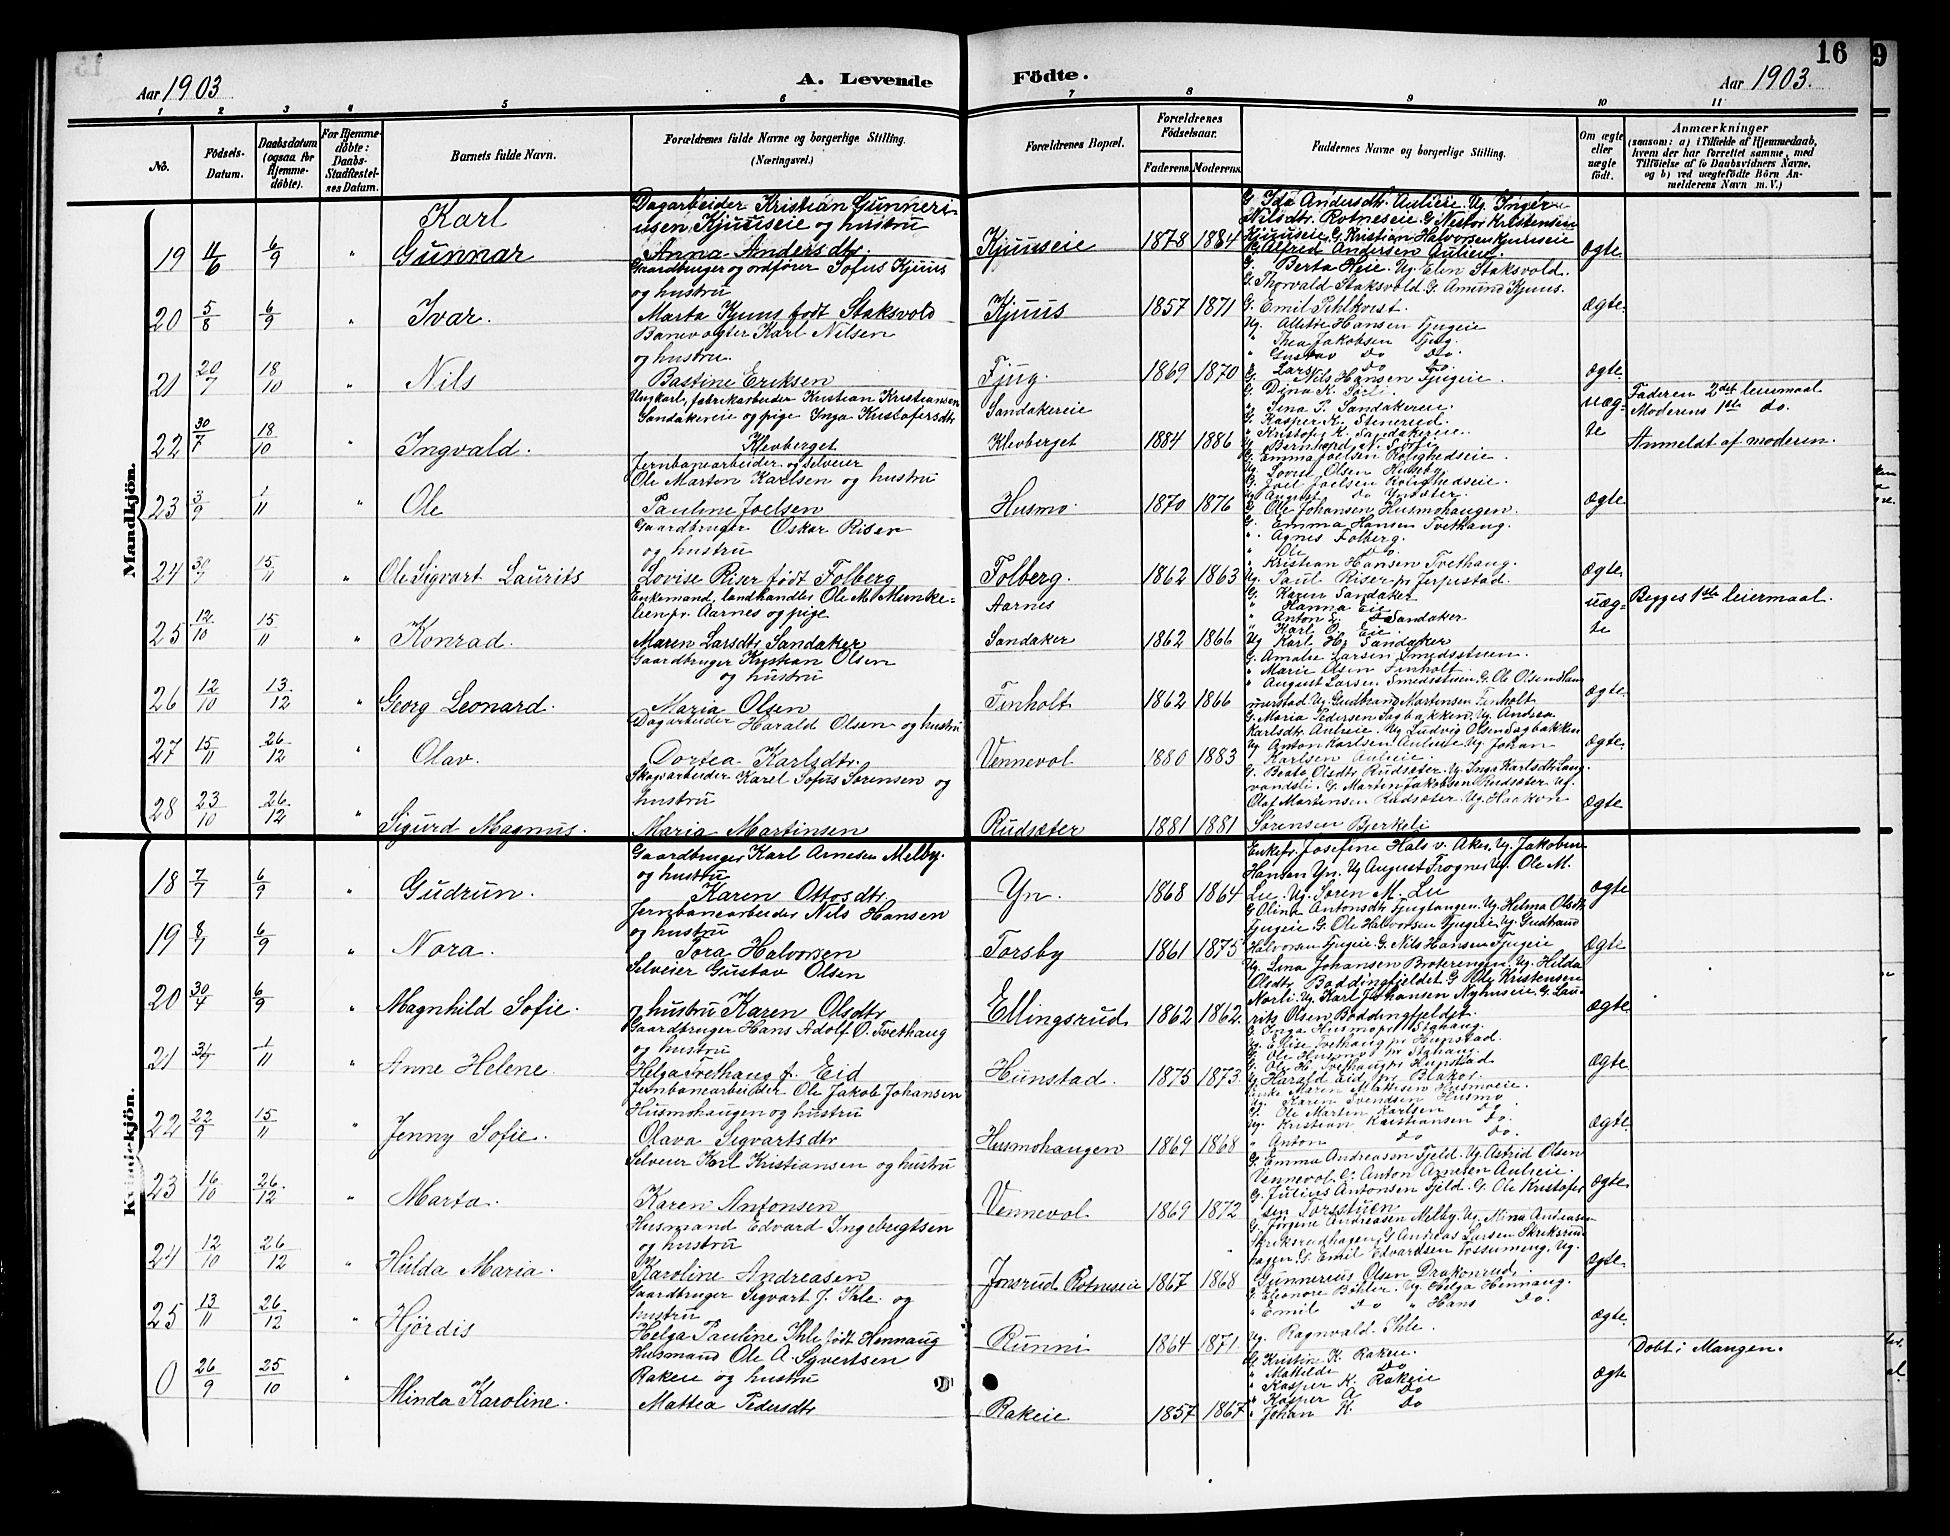 16
9
Aar 1903
A. Levende
Födte.
Aar 1903.
1 2 3 4 5 6 7 8 9 10 11
No.
Födsels-Datum.
Daabsdatum (ogsaa for Hjemme-döbte).
For Hjemme-döbte: Daabs-Stadfæstel-ses Datum.
Barnets fulde Navn.
Forældrenes fulde Navne og borgerlige Stilling. (Næringsvei.)
Forældrenes Bopæl.
Forældrenes Födselsaar.
Faderens. Moderens.
Faddernes Navne og borgerlige Stilling.
Om ægte eller uægte født.
Anmærkninger
(saasom: a) i Tilfælde af Hjemmedaab, hvem der har forrettet samme, med Tilföielse af to Daabsvidners Navne, og b) ved uægtefödte Börn An-melderens Navn m. V.)
Mandkjön.
19 11/6 6/9 " Karl Gunnar
Dagarbeider Kristian Gunneri-
usen Kjuuseie og hustru
Anna Andersdtr.
Kjuuseie 1878 1884
G. Ida Andersdtr. Aulieie. Ug. Inger
Nilsdtr. Rotneseie G. Nestor Kristensen
Kjuuseie. G. Kristian Halvorsen Kjuuseie
Alfred Andersen Aulieie.
ægte
20 5/8 6/9 " Ivar.
Gaardbruger og ordfører Sofus Kjuus
og hustru
Marta Kjuus født Staksvold
Kjuus 1857 1871
G. Berta Heie. Ug. Elin Staksvold.
G. Thorvald Staksvold. G. Amund Kjuus.
G. Emil Pehlkvist.
ægte.
21 20/7 18/10 " Nils
Banevogter Karl Nilsen
og hustru.
Bastine Eriksen
Fjug. 1869 1870
Ug. Allette Hansen Fjugeie
" Thea Jakobsen Fjug.
" Gustav do do.
" Lars do do
G. Nils Hansen Fjugeie.
ægte.
22 30/7 18/10 " Ingvald.
Ungkarl, fabrikarbeider Kristian Kristiansen
Sandakereie og pige Inga Kristofersdtr
Klevberget
Sandakereie
Klevberget 1884 1886
G. Dina K.
" Lina P. Sandakereie.
G. Kasper K. Stenerud.
" Kristofer K. Sandakereie.
Ug Bernhard N.
uæg-
te
Faderen 2det leiermaal
Moderens 1ste do.
Anmeldt af moderen.
23 3/9 1/11 " Ole
Jernbanearbeider og selveier
Ole Marton Karlsen og hustru
Pauline Joelsen
Husmo 1870 1876
G. Emma Joelsen Rolighedseie.
Ug. Lovise Olsen Huseby.
G. Joel Joelsen Rolighedseie.
Ug August do
G. Ole Johansen Husmohaugen.
ægte.
24 30/7 15/11 " Ole Sigvart Laurits
Gaardbruger Oskar Riser
og hustru
Lovise Riser født Folberg
Folberg. 1862 1863
G. Emma Hansen Tvethaug.
". Agnes Folberg.
" Ole do.
" Kristian Hansen Tvethaug.
Ug. Paul Riser pr Jerpstad.
ægte.
25 12/10 15/11 " Konrad.
Enkemand, landhandler Ole M. Munke-
lien fr. Aarnes og pige
Maren Larsdtr Sandaker
Aarnes
Sandaker 1862 1866
G. Karen Sandaker
" Hanna Eie
" Anton L. Sandaker
" Karl O. Eie.
Ug Karl Hs Sandaker
uæg-
te
Begges 1ste leiermaal.
26 12/10 13/12 " Georg Leonard.
Gaardbruger Kristian Olsen
og hustru
Maria Olsen
Finholt 1862 1866
G. Amalie Larsen Smedsstuen.
" Marie Olsen Finholt.
" August Larsen Smedsstuen. G. Ole Olsen Ham
merstad Ug. Gudbrand Martensen Finholt
ægte.
27 15/11 26/12 " Olav.
Dagarbeider Harald Olsen og hustru
Dortea Karlsdtr.
Vennevol 1880 1883
G. Maria Pedersen Sagbakken. Ug. Andrea
Karlsdtr. Aulieie. Ug Ludvig Olsen Sagbakken
Ug Anton Karlsen Aulieie Ug. Johan
Karlsen Aulieie.
ægte.
28 23/10 26/12 " Sigurd Magnus.
Skogarbeider Karel Sofus Sørensen og
hustru
Maria Martinsen
Rudsæter 1881 1881
G. Beate Olsdtr Rudsæter. Ug. Inga Karlsdtr Lang
vandsli. G. Martin Jakobsen Rudsæter. Ug.
Olaf Martinsen Rudsæter. Ug. Haakon
Sørensen Bjerkeli
ægte
Kvindekjön.
18 7/7 6/9 " Gudrun.
Gaardbruger Karl Arnesen Melby.
og hustru
Karen Ottosdtr
Yn. 1868 1864
Enkefr. Josefine Hals v. Aker. Ug. Jakobine
Hansen Yn. Ug August Trogner Ug. Ole M.
Lie. Ug. Søren M. Lie
ægte
19 8/7 6/9 " Nora.
Jernbanearbeider Nils Hansen
og hustru
Tora Halvorsen
Torsby 1861 1875
G Olina Antonsdtr Fjugtangen. Ug. Helma Olsdtr
Fjugeie. G. Ole Halvorsen Fjugeie Ug. Gudbrand
Halvorsen Fjugeie G. Nils Hansen Fjugeie
ægte
20 30/4 6/9 " Magnhild Sofie.
Selveier Gustav Olsen
og hustru Karen Olsdtr
Ellingsrud 1862 1862.
Ug. Lina Johansen Braterengen. Ug. Hilda
Olsdtr Boddingfjeldet. G Ole Kristensen
Norli. Ug. Karl Johansen Nyhuseie. G. Lau-
rits Olsen Boddingfjeldet.
ægte
21 31/7 1/11 " Anne Helene.
Gaardbruger Hans Adolf O. Tvethaug
og hustru
Helga Tvethaug f. Eid
Hunstad. 1875 1873.
G. Inga Husmo pr Stahaug.
Ug. Elise Tvethaug pr Hunstad.
G. Ole Husmo pr Stahaug
G. Ole H. Tvethaug pr Hunstad
Ug Harald Eid pr Blaker.
ægte
22 22/9 15/11 " Jenny Sofie.
Jernbanearbeider Ole Jakob Johansen
Husmohaugen og hustru
Olava Sigvartsdtr
Husmohaugen 1869 1868
Enke Maren Mattisen Husmoeie.
Ug. Karen Svendsen Husmo
G. Ole Martin Karlsen do
Ug. Kristian Kristiansen do.
" Anton do do.
ægte.
23 16/10 26/12 " Marta.
Selveier Karl Kristiansen og hustru
Karen Antonsen
Vennevol 1869 1872
G. Emma Andreasen Fjeld. Ug. Astrid Olsen
Vennevol. G. Anton Arnesen Aulieie.
G. Julius Antonsen Fjeld. G. Ole Kristofer
sen Torsstuen
ægte.
24 12/10 26/12 " Hilda Maria.
Husmand Edvard Ingebrigtsen
og hustru
Karoline Andreasen
Jonsrud Rotneseie 1867 1868
G. Jørgine Andreasen Melby. Ug. Mina Andreasen
Skriksrudhagen. G. Andreas Larsen Skriksrud
hagen. G. Emil Edvardsen Fossumeng. Ug.
Gunnerius Olsen Drakonrud.
ægte.
25 13/11 26/12 " Hjördis
Gaardbruger Sigvart J. Ihle og
hustru
Helga Pauline Ihle født Hennaug
Runni 1864 1871.
G. Eleonore Böhler. Ug. Helga Hennaug.
" Emil do " Hans do.
Ug. Ragnvald Ihle.
ægte.
0 26/9 25/10 " Minda Karoline.
Husmand Ole A. Syvertsen
Rakeie og hustru
Mattea Pedersdtr
Rakeie 1857 1867
G Kristin K. Rakeie.
" Mathilde do
" Kasper K. Rakeie
" Kasper A do
" Johan K. do
ægte
Döbt i Mangen.